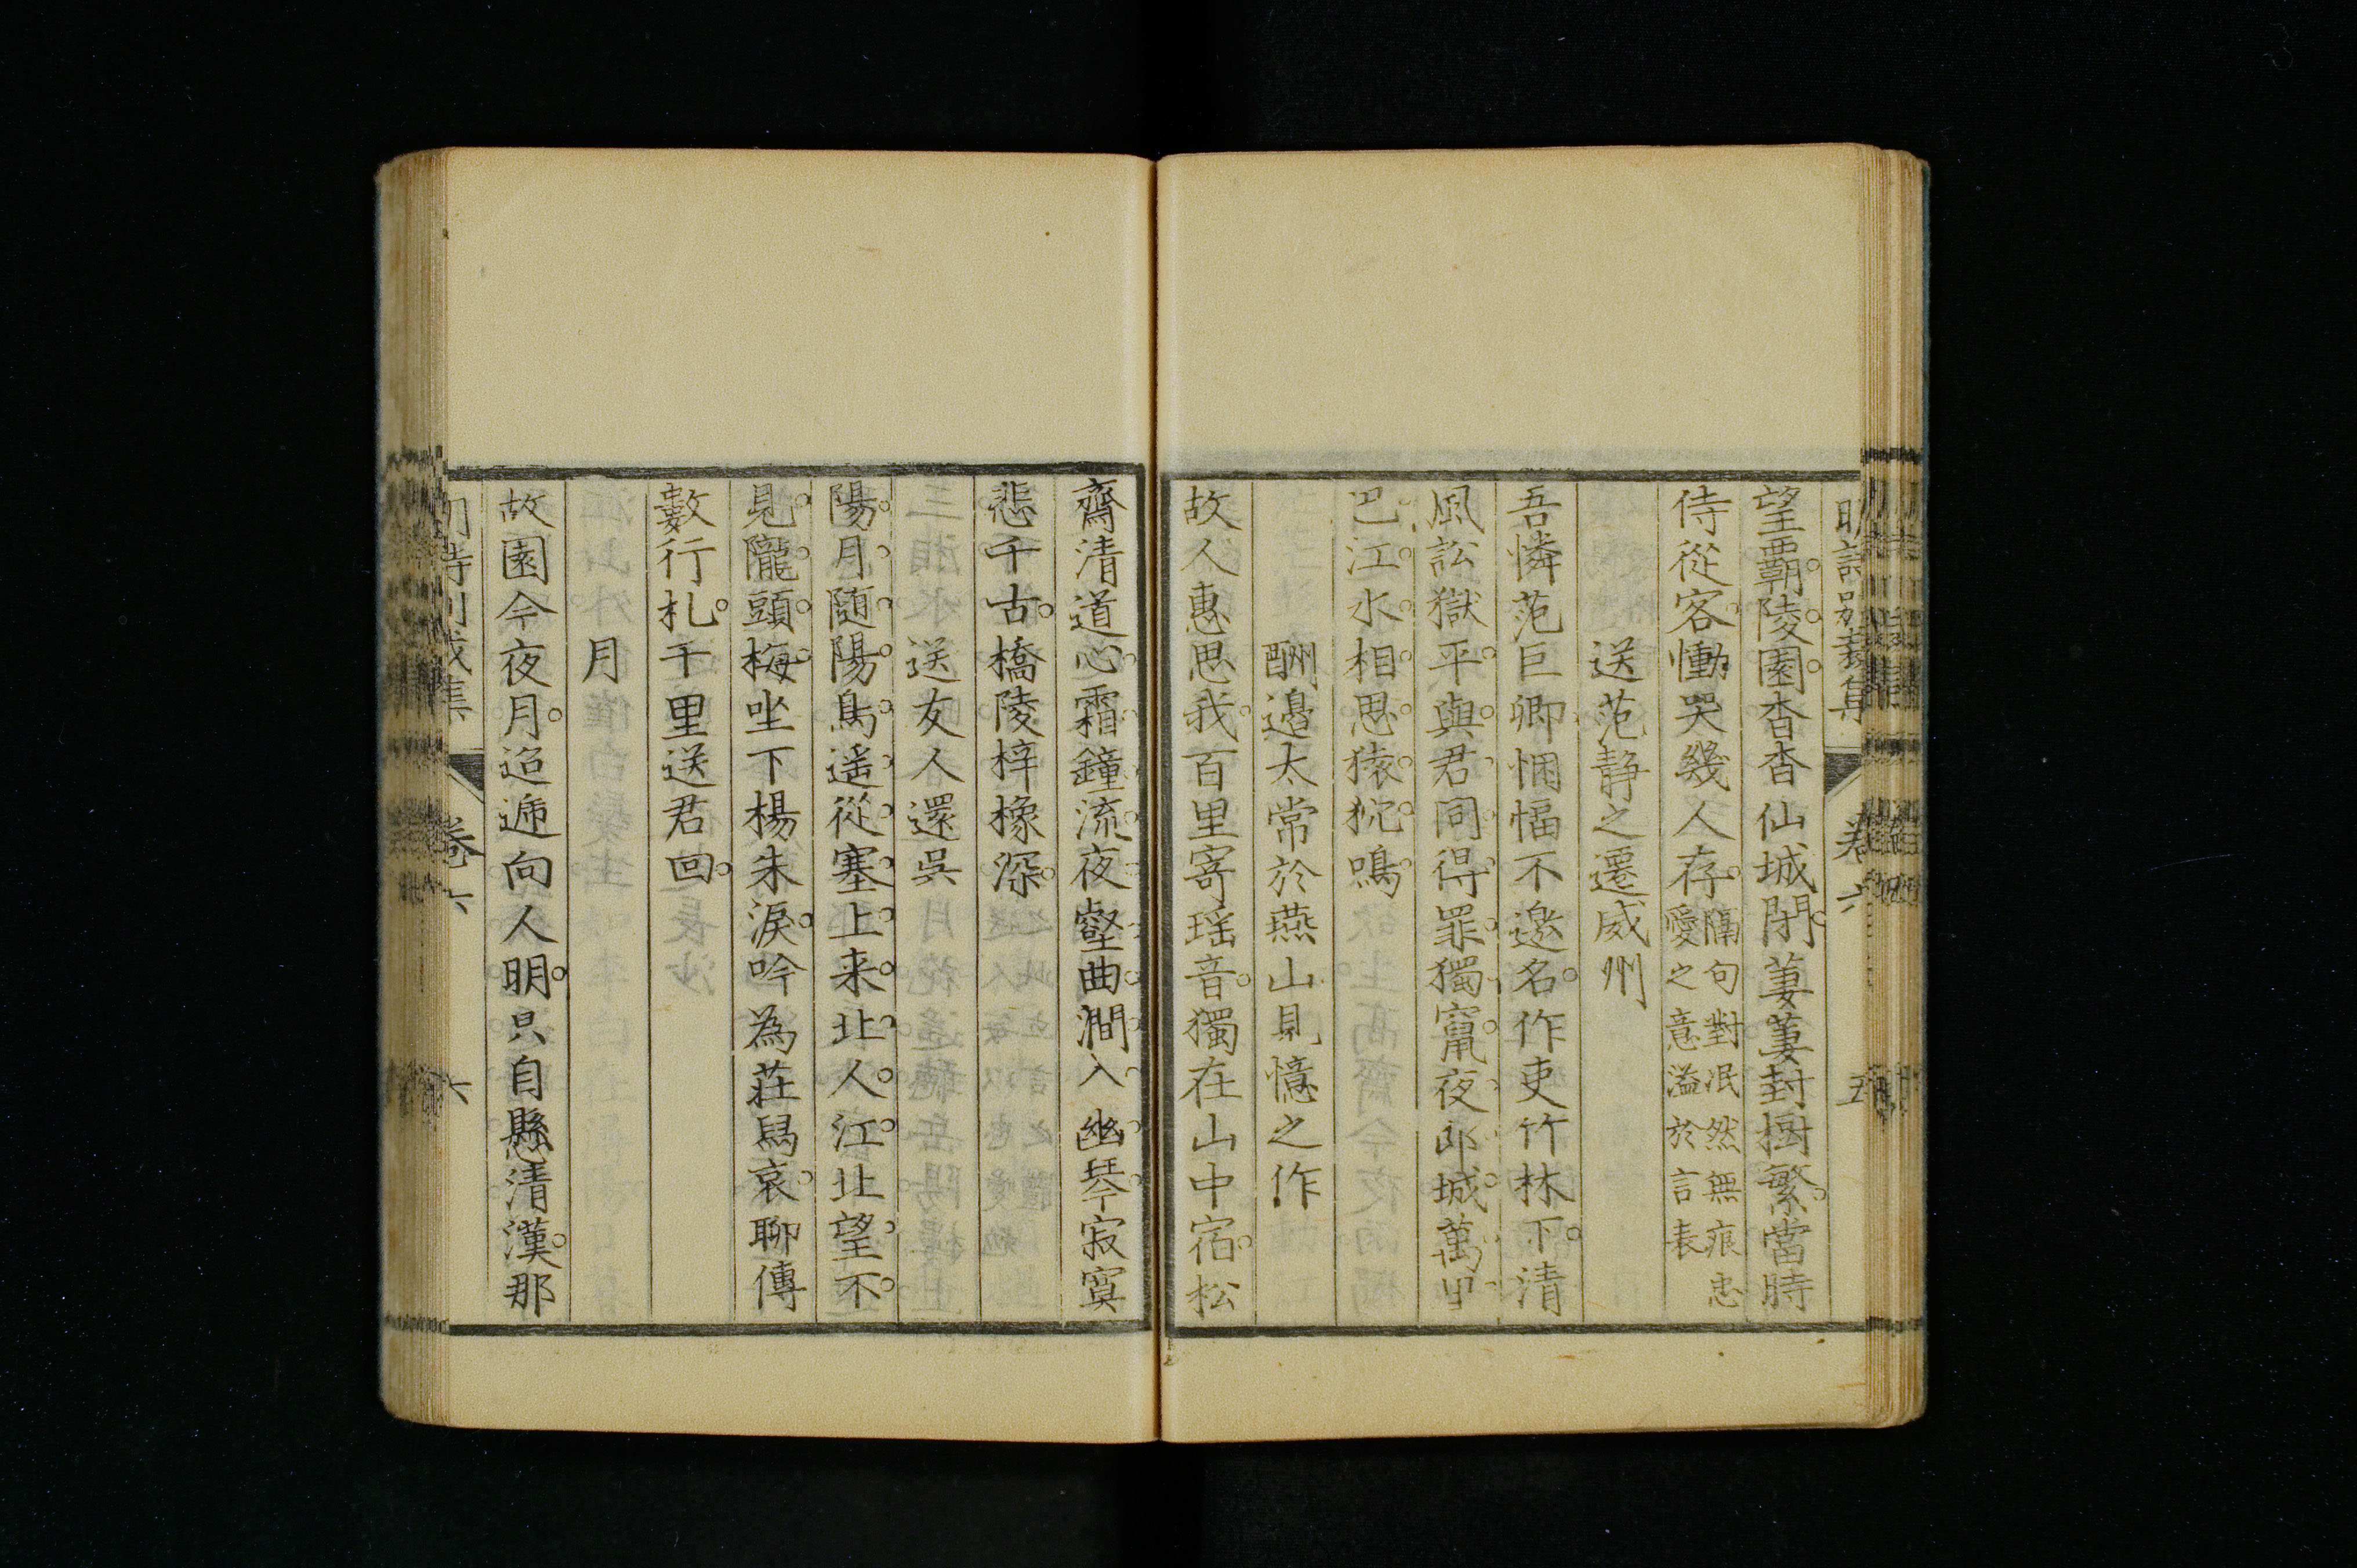 明詩別裁集 卷六 五
望霸陵園杳杳仙城閉萋萋封樹繁當時
侍從客慟哭幾人存隔句對泯然無痕忠
愛之意溢於言表
送范靜之遷威州
吾憐范巨卿悃愊不邀名作吏竹林下清
風訟獄平與君同得罪獨竄夜郎城萬里
巴江水相思猿狖鳴
酬邊太常於燕山見憶之作
故人惠思我百里寄瑶音獨在山中宿松
齋清道心霜鐘流夜壑曲澗入幽琴寂寞
悲千古橋陵梓橡深
送友人還吳
陽月隨陽鳥遥從塞上来北人江北望不
見隴頭梅坐下楊朱淚吟為莊舄哀聊傳
數行札千里送君回
月
故園今夜月迢遞向人明只自縣清漢那
卷六 六